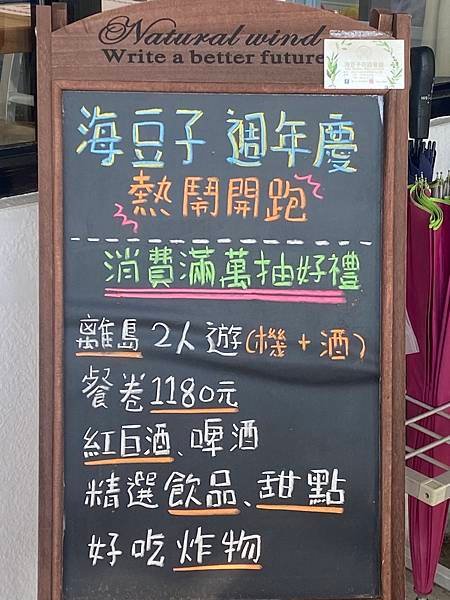 Natural wind
Write a better future
海豆子 週年慶
熱鬧開跑
消費滿萬抽好禮
離島2人遊(機+酒)
餐卷1180元
紅白酒、啤酒
精選飲品、甜點
好吃炸物